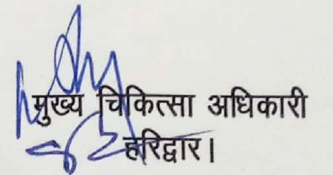 मुख्य चिकित्सा अधिकारी
हरिद्वार।